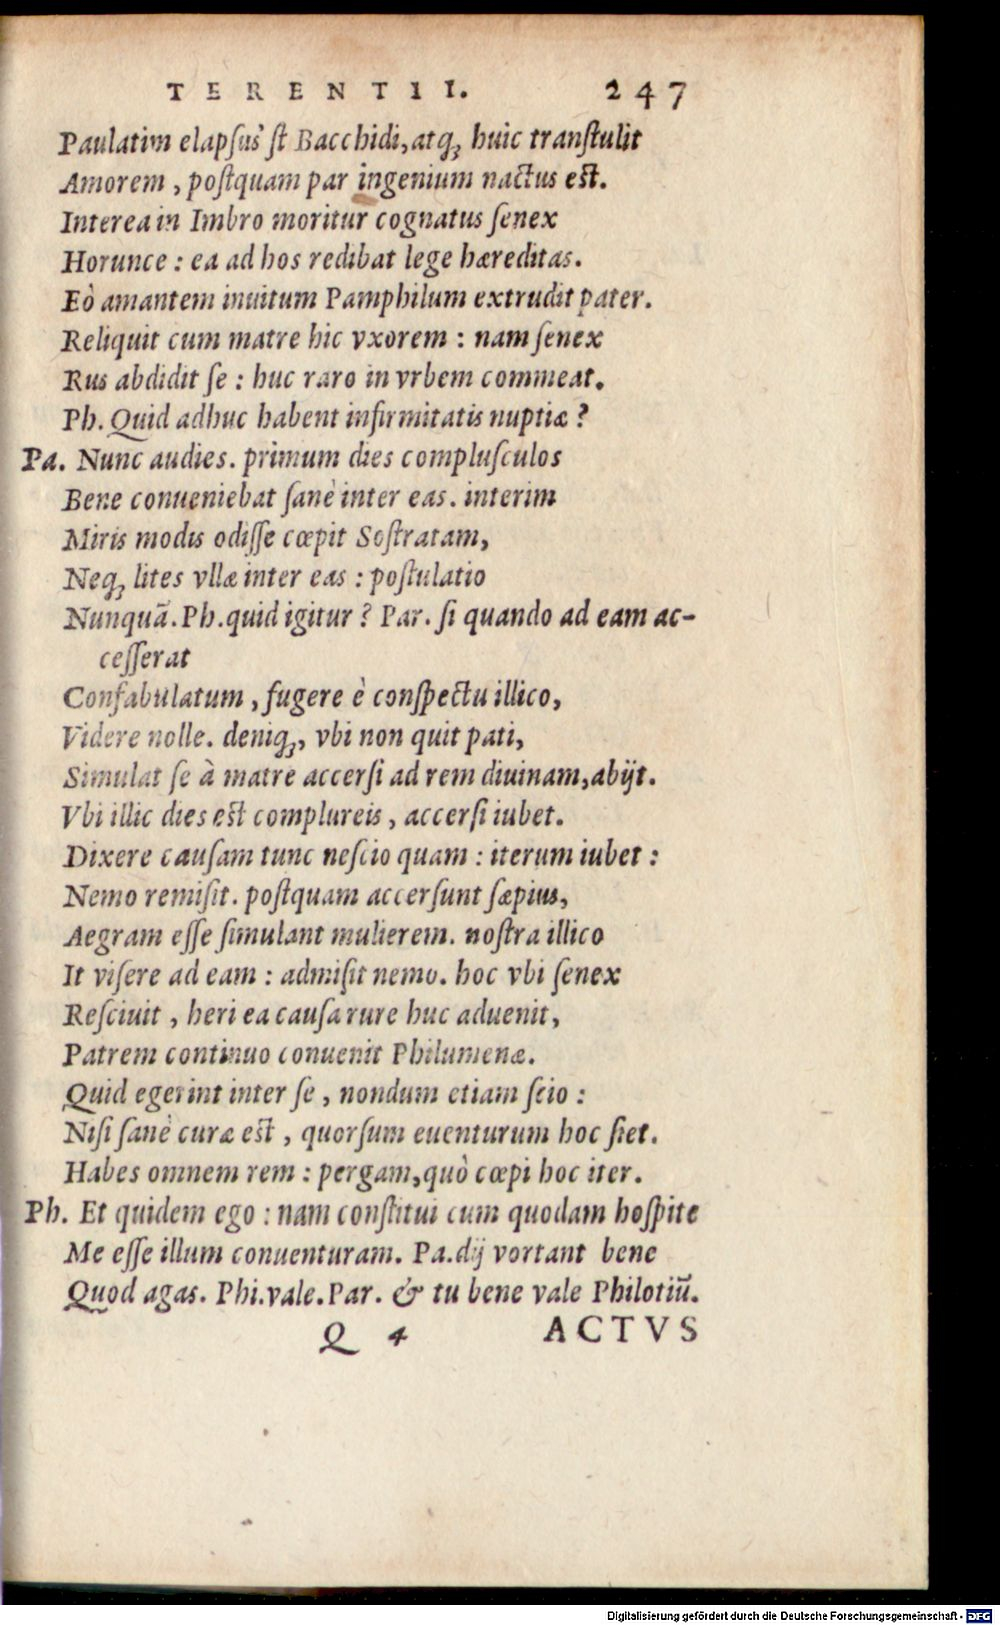 TERENTII. 247
Paulatim elapsus' st Bacchidi, atq; huic transtulit
Amorem, postquam par ingenium nactus est.
Interea in Imbro moritur cognatus senex
Horunce: ea ad hos redibat lege hæreditas.
Eò amantem inuitum Pamphilum extrudit pater.
Reliquit cum matre hic vxorem: nam senex
Rus abdidit se: huc raro in vrbem commeat.
Ph. Quid adhuc habent infirmitatis nuptiæ?
Pa. Nunc audies. primum dies complusculos
Bene conueniebat sanè inter eas. interim
Miris modis odisse cœpit Sostratam,
Neq; lites vllæ inter eas: postulatio
Nunquã. Ph. quid igitur? Par. si quando ad eam ac-
cesserat
Confabulatum, fugere è conspectu illico,
Videre nolle. deniq;, vbi non quit pati,
Simulat se à matre accersi ad rem diuinam, abijt.
Vbi illic dies est complureis, accersi iubet.
Dixere causam tunc nescio quam: iterum iubet:
Nemo remisit. postquam accersunt sæpius,
Aegram esse simulant mulierem. nostra illico
It visere ad eam: admisit nemo. hoc vbi senex
Resciuit, heri ea causa rure huc aduenit,
Patrem continuo conuenit Philumenæ.
Quid egerint inter se, nondum etiam scio:
Nisi sanè curæ est, quorsum euenturum hoc siet.
Habes omnem rem: pergam, quò cœpi hoc iter.
Ph. Et quidem ego: nam constitui cum quodam hospite
Me esse illum conuenturam. Pa. dij vortant bene
Quod agas. Phi. vale. Par. & tu bene vale Philotiũ.
Q 4 ACTVS
Digitalisierung gefördert durch die Deutsche Forschungsgemeinschaft - DFG